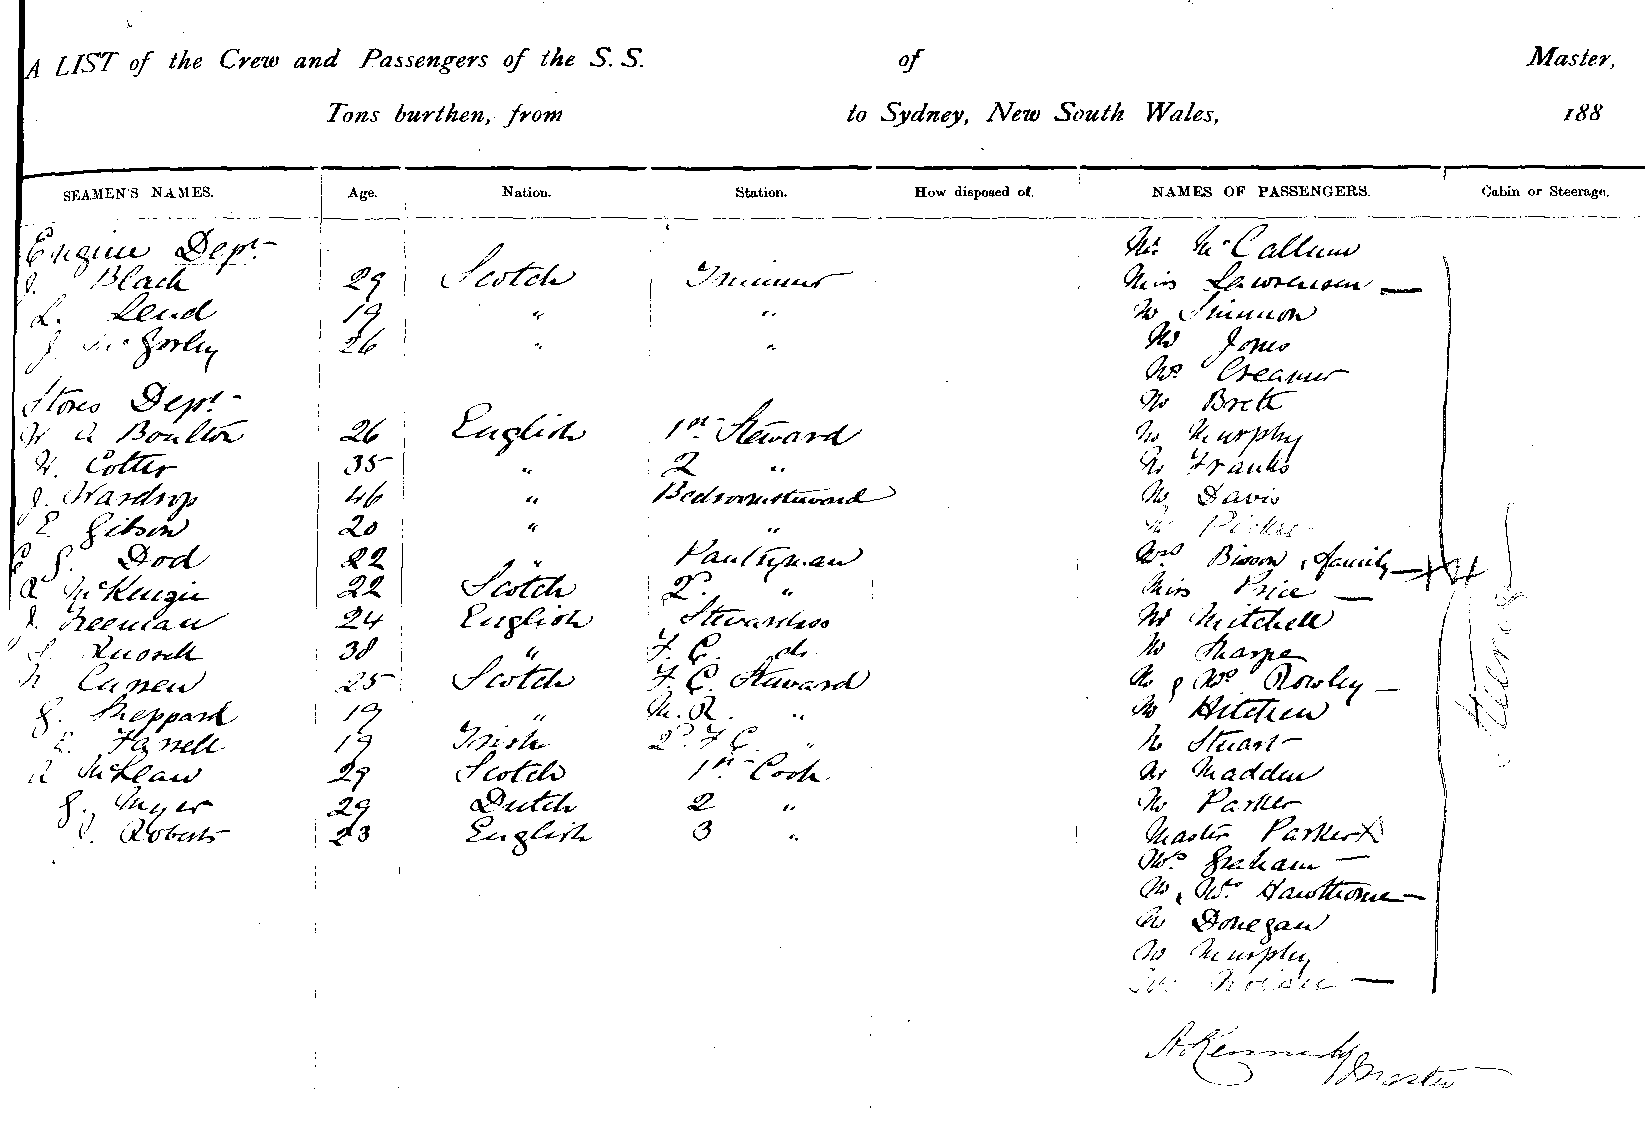 A LIST of the Crew and Passengers of the S.S. of Master,
Tons burthen, from to Sydney, New South Wales, 188
SEAMEN'S NAMES. Age. Nation. Station. How disposed of. NAMES OF PASSENGERS. Cabin or Steerage.
Engine Dept. Mr. McCallum
J. Black 29 Scotch Trimmer Miss Lawrenson —
L. Lend 19 " " Mr Simmon
J McGorley 26 " " Mr Jones
Mrs Creamer
Stores Dept. Mr Brett
W A Boulton 26 English 1st Steward Mr Murphy
W. Cotter 35 " 2 " Mr Franks
J. Wardrop 46 " Bedroomsteward Mr Davis
E. Gibson 20 " " Mr
G. Dod 22 " Pantryman Mrs Bisson, family — 4
A McKenzie 22 Scotch 2d. " Miss Price —
J. Freeman 24 English Stewardess Mr Mitchell
S. Russell 38 " F. C. do. Mr Sharpe
Curren 25 Scotch F. C. Steward Mr & Mrs Rowley —
G. Sheppard 19 " M. R. " Mr Hitchen
E. Farrell 19 Irish 2d. F C. " Mr Stuart
A McLean 29 Scotch 1st Cook Mr Madden
G. Meyer 29 Dutch 2 " Mr Parker
J. Roberts 23 English 3 " Master Parker X
Mrs. Graham —
Mr, Mrs. Hawthorne —
Mr Donegan
Mr Murphy
Mrs Nolan —
Steerage
A Kennedy
Master